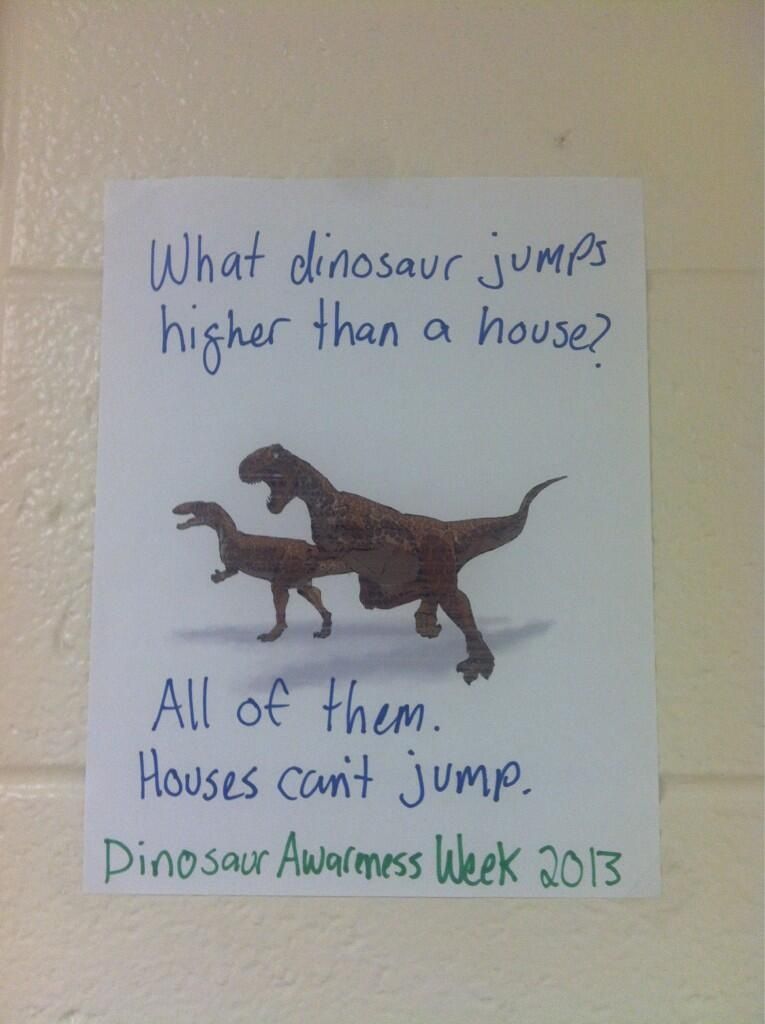 What dinosaur jumps
higher than a house?
All of them.
Houses can't jump.
Dinosaur Awareness Week 2013